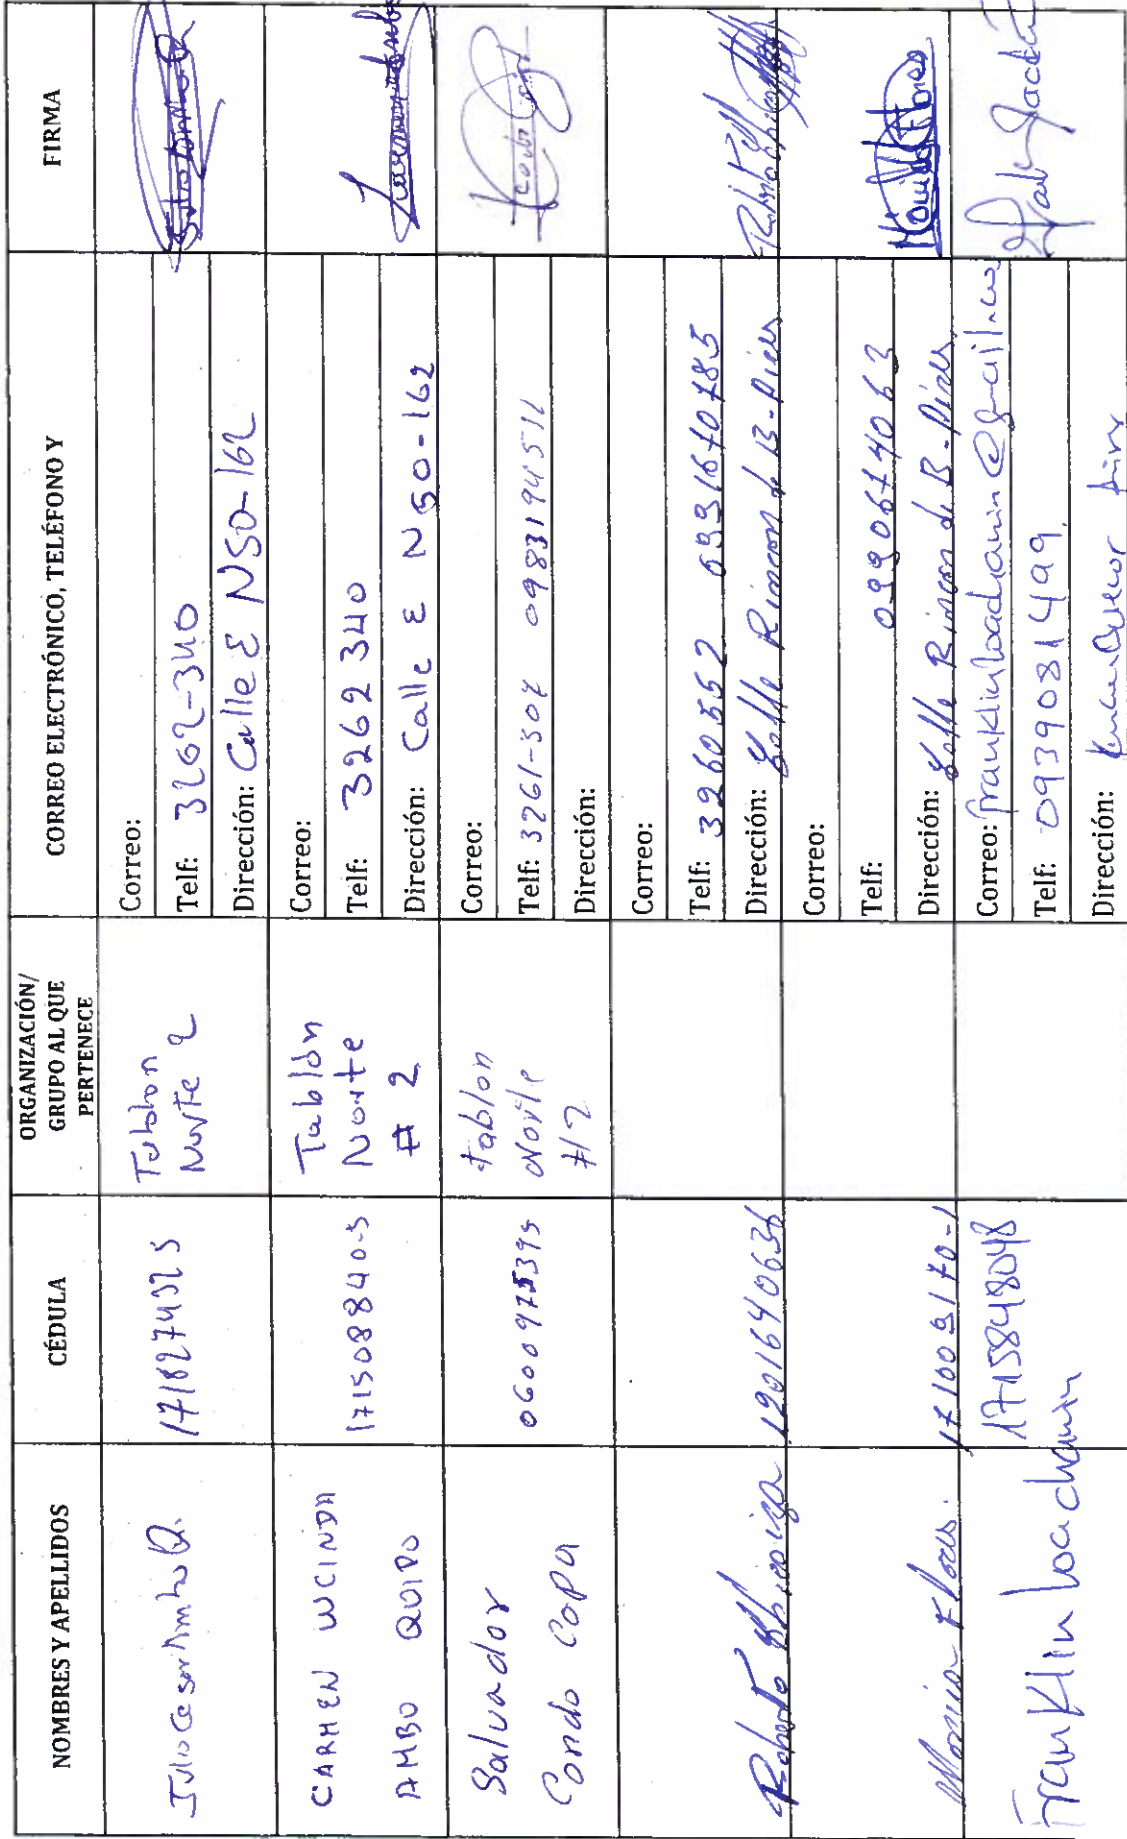 NOMBRES Y APELLIDOS
CÉDULA
ORGANIZACIÓN/
GRUPO AL QUE
PERTENECE
CORREO ELECTRÓNICO, TELÉFONO Y
FIRMA
Julio Cesar Ambo Q.
1718274325
Tablon
Norte 2
Correo:
Telf: 3262-340
Dirección: Calle E N50-162
CARMEN LUCINDA
AMBO QUIPO
171508840-5
Tablón
Norte
# 2
Correo:
Telf: 3262 340
Dirección: Calle E N50-162
Salvador
Condo Copa
0600975395
tablon
Norte
#2
Correo:
Telf: 3261-502 0983194511
Dirección:
Roberto
1201640636
Correo:
Telf: 3260552 0991670785
Dirección: Calle Rincon de B-Aires
Monica Flores.
171009170-1
Correo:
Telf: 0990674062
Dirección: Calle Rincon de B-Aires
Monica Flores
Franklin loachamin
1715848048
Correo: franklinloachamin@gmail.co
Telf: 0939081499
Dirección: